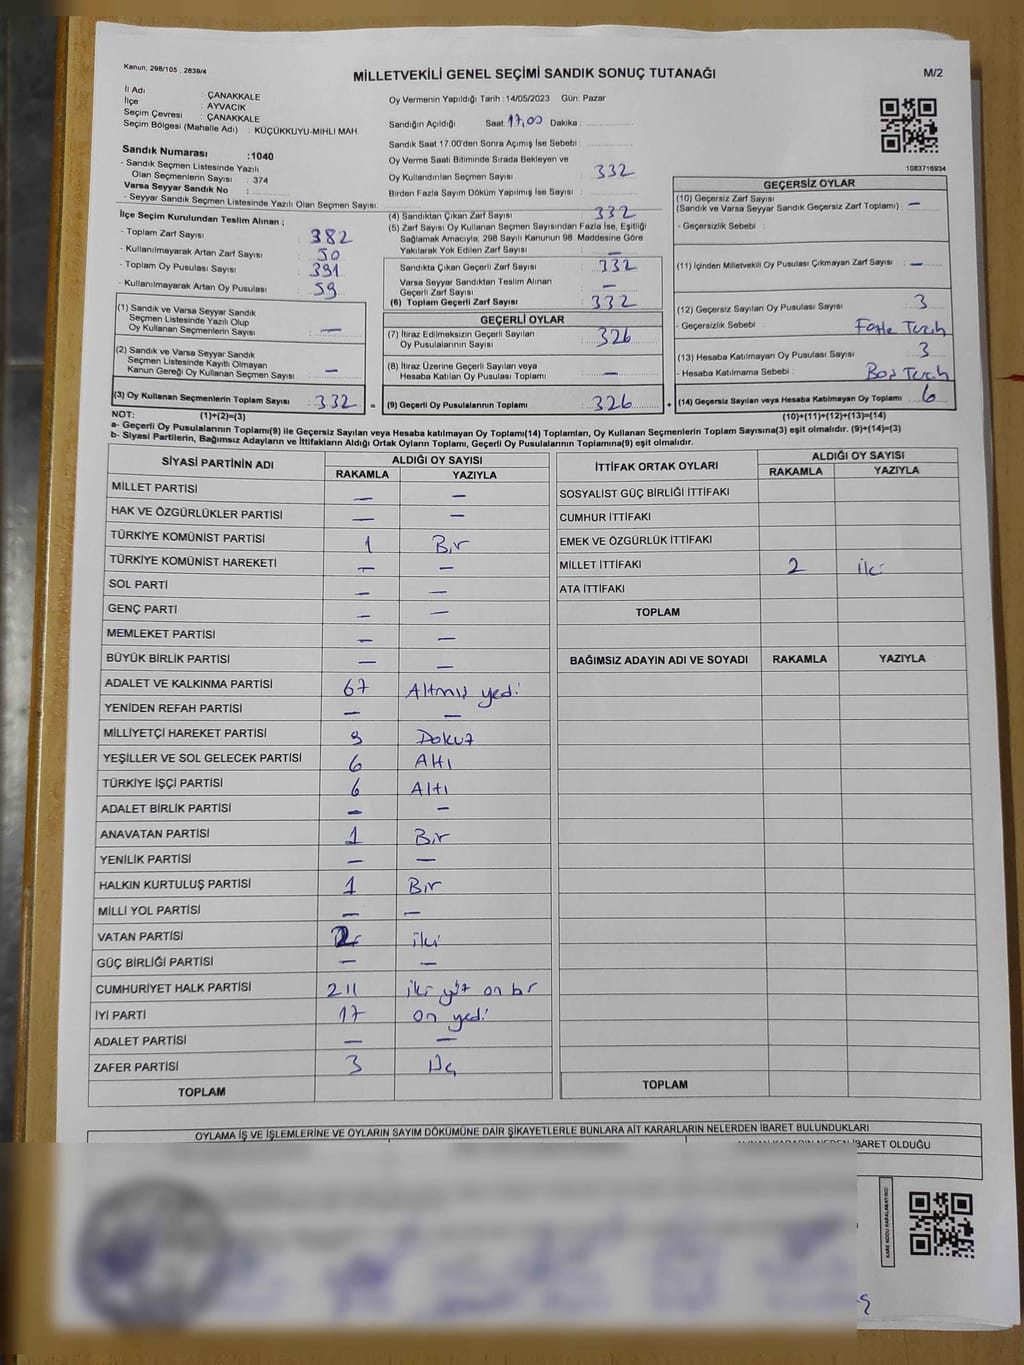 Kanun, 298/105 , 2839/4
MİLLETVEKİLİ GENEL SEÇİMİ SANDIK SONUÇ TUTANAĞI
M/2
İl Adı : ÇANAKKALE
İlçe : AYVACIK
Seçim Çevresi : ÇANAKKALE
Seçim Bölgesi (Mahalle Adı) : KÜÇÜKKUYU-MIHLI MAH.
Sandık Numarası :1040
- Sandık Seçmen Listesinde Yazılı
Olan Seçmenlerin Sayısı : 374
Varsa Seyyar Sandık No :
- Seyyar Sandık Seçmen Listesinde Yazılı Olan Seçmen Sayısı:
Oy Vermenin Yapıldığı Tarih :14/05/2023 Gün: Pazar
Sandığın Açıldığı Saat 17,00 Dakika :
Sandık Saat 17.00'den Sonra Açımış İse Sebebi :
Oy Verme Saati Bitiminde Sırada Bekleyen ve
Oy Kullandırılan Seçmen Sayısı 332
Birden Fazla Sayım Döküm Yapılmış İse Sayısı :
1083716934
İlçe Seçim Kurulundan Teslim Alınan ;
- Toplam Zarf Sayısı 382
- Kullanılmayarak Artan Zarf Sayısı 50
- Toplam Oy Pusulası Sayısı 391
- Kullanılmayarak Artan Oy Pusulası 59
(1) Sandık ve Varsa Seyyar Sandık
Seçmen Listesinde Yazılı Olup
Oy Kullanan Seçmenlerin Sayısı —
(2) Sandık ve Varsa Seyyar Sandık
Seçmen Listesinde Kayıtlı Olmayan
Kanun Gereği Oy Kullanan Seçmen Sayısı —
(3) Oy Kullanan Seçmenlerin Toplam Sayısı 332 =
(4) Sandıktan Çıkan Zarf Sayısı 332
(5) Zarf Sayısı Oy Kullanan Seçmen Sayısından Fazla İse, Eşitliği
Sağlamak Amacıyla, 298 Sayılı Kanunun 98. Maddesine Göre
Yakılarak Yok Edilen Zarf Sayısı —
Sandıkta Çıkan Geçerli Zarf Sayısı 332
Varsa Seyyar Sandıktan Teslim Alınan
Geçerli Zarf Sayısı —
(6) Toplam Geçerli Zarf Sayısı 332
GEÇERLİ OYLAR
(7) İtiraz Edilmeksizin Geçerli Sayılan
Oy Pusulalarının Sayısı 326
(8) İtiraz Üzerine Geçerli Sayılan veya
Hesaba Katılan Oy Pusulası Toplamı —
(9) Geçerli Oy Pusulalarının Toplamı 326 +
GEÇERSİZ OYLAR
(10) Geçersiz Zarf Sayısı
(Sandık ve Varsa Seyyar Sandık Geçersiz Zarf Toplamı) —
- Geçersizlik Sebebi :
(11) İçinden Milletvekili Oy Pusulası Çıkmayan Zarf Sayısı —
(12) Geçersiz Sayılan Oy Pusulası Sayısı 3
- Geçersizlik Sebebi : Fazla Tercih
(13) Hesaba Katılmayan Oy Pusulası Sayısı 3
- Hesaba Katılmama Sebebi : Boş Tercih
(14) Geçersiz Sayılan veya Hesaba Katılmayan Oy Toplamı 6
NOT: (1)+(2)=(3)
(10)+(11)+(12)+(13)=(14)
a- Geçerli Oy Pusulalarının Toplamı(9) ile Geçersiz Sayılan veya Hesaba katılmayan Oy Toplamı(14) Toplamları, Oy Kullanan Seçmenlerin Toplam Sayısına(3) eşit olmalıdır. (9)+(14)=(3)
b- Siyasi Partilerin, Bağımsız Adayların ve İttifakların Aldığı Ortak Oyların Toplamı, Geçerli Oy Pusulalarının Toplamına(9) eşit olmalıdır.
SİYASİ PARTİNİN ADI ALDIĞI OY SAYISI
RAKAMLA YAZIYLA
MİLLET PARTİSİ — —
HAK VE ÖZGÜRLÜKLER PARTİSİ — —
TÜRKİYE KOMÜNİST PARTİSİ 1 Bir
TÜRKİYE KOMÜNİST HAREKETİ — —
SOL PARTİ — —
GENÇ PARTİ — —
MEMLEKET PARTİSİ — —
BÜYÜK BİRLİK PARTİSİ — —
ADALET VE KALKINMA PARTİSİ 67 Altmış yedi
YENİDEN REFAH PARTİSİ — —
MİLLİYETÇİ HAREKET PARTİSİ 9 Dokuz
YEŞİLLER VE SOL GELECEK PARTİSİ 6 Altı
TÜRKİYE İŞÇİ PARTİSİ 6 Altı
ADALET BİRLİK PARTİSİ — —
ANAVATAN PARTİSİ 1 Bir
YENİLİK PARTİSİ — —
HALKIN KURTULUŞ PARTİSİ 1 Bir
MİLLİ YOL PARTİSİ — —
VATAN PARTİSİ 2 iki
GÜÇ BİRLİĞİ PARTİSİ — —
CUMHURİYET HALK PARTİSİ 211 iki yüz on bir
İYİ PARTİ 17 on yedi
ADALET PARTİSİ — —
ZAFER PARTİSİ 3 Üç
TOPLAM
İTTİFAK ORTAK OYLARI ALDIĞI OY SAYISI
RAKAMLA YAZIYLA
SOSYALİST GÜÇ BİRLİĞİ İTTİFAKI
CUMHUR İTTİFAKI
EMEK VE ÖZGÜRLÜK İTTİFAKI
MİLLET İTTİFAKI 2 iki
ATA İTTİFAKI
TOPLAM
BAĞIMSIZ ADAYIN ADI VE SOYADI RAKAMLA YAZIYLA
TOPLAM
OYLAMA İŞ VE İŞLEMLERİNE VE OYLARIN SAYIM DÖKÜMÜNE DAİR ŞİKAYETLERLE BUNLARA AİT KARARLARIN NELERDEN İBARET BULUNDUKLARI
İBARET OLDUĞU